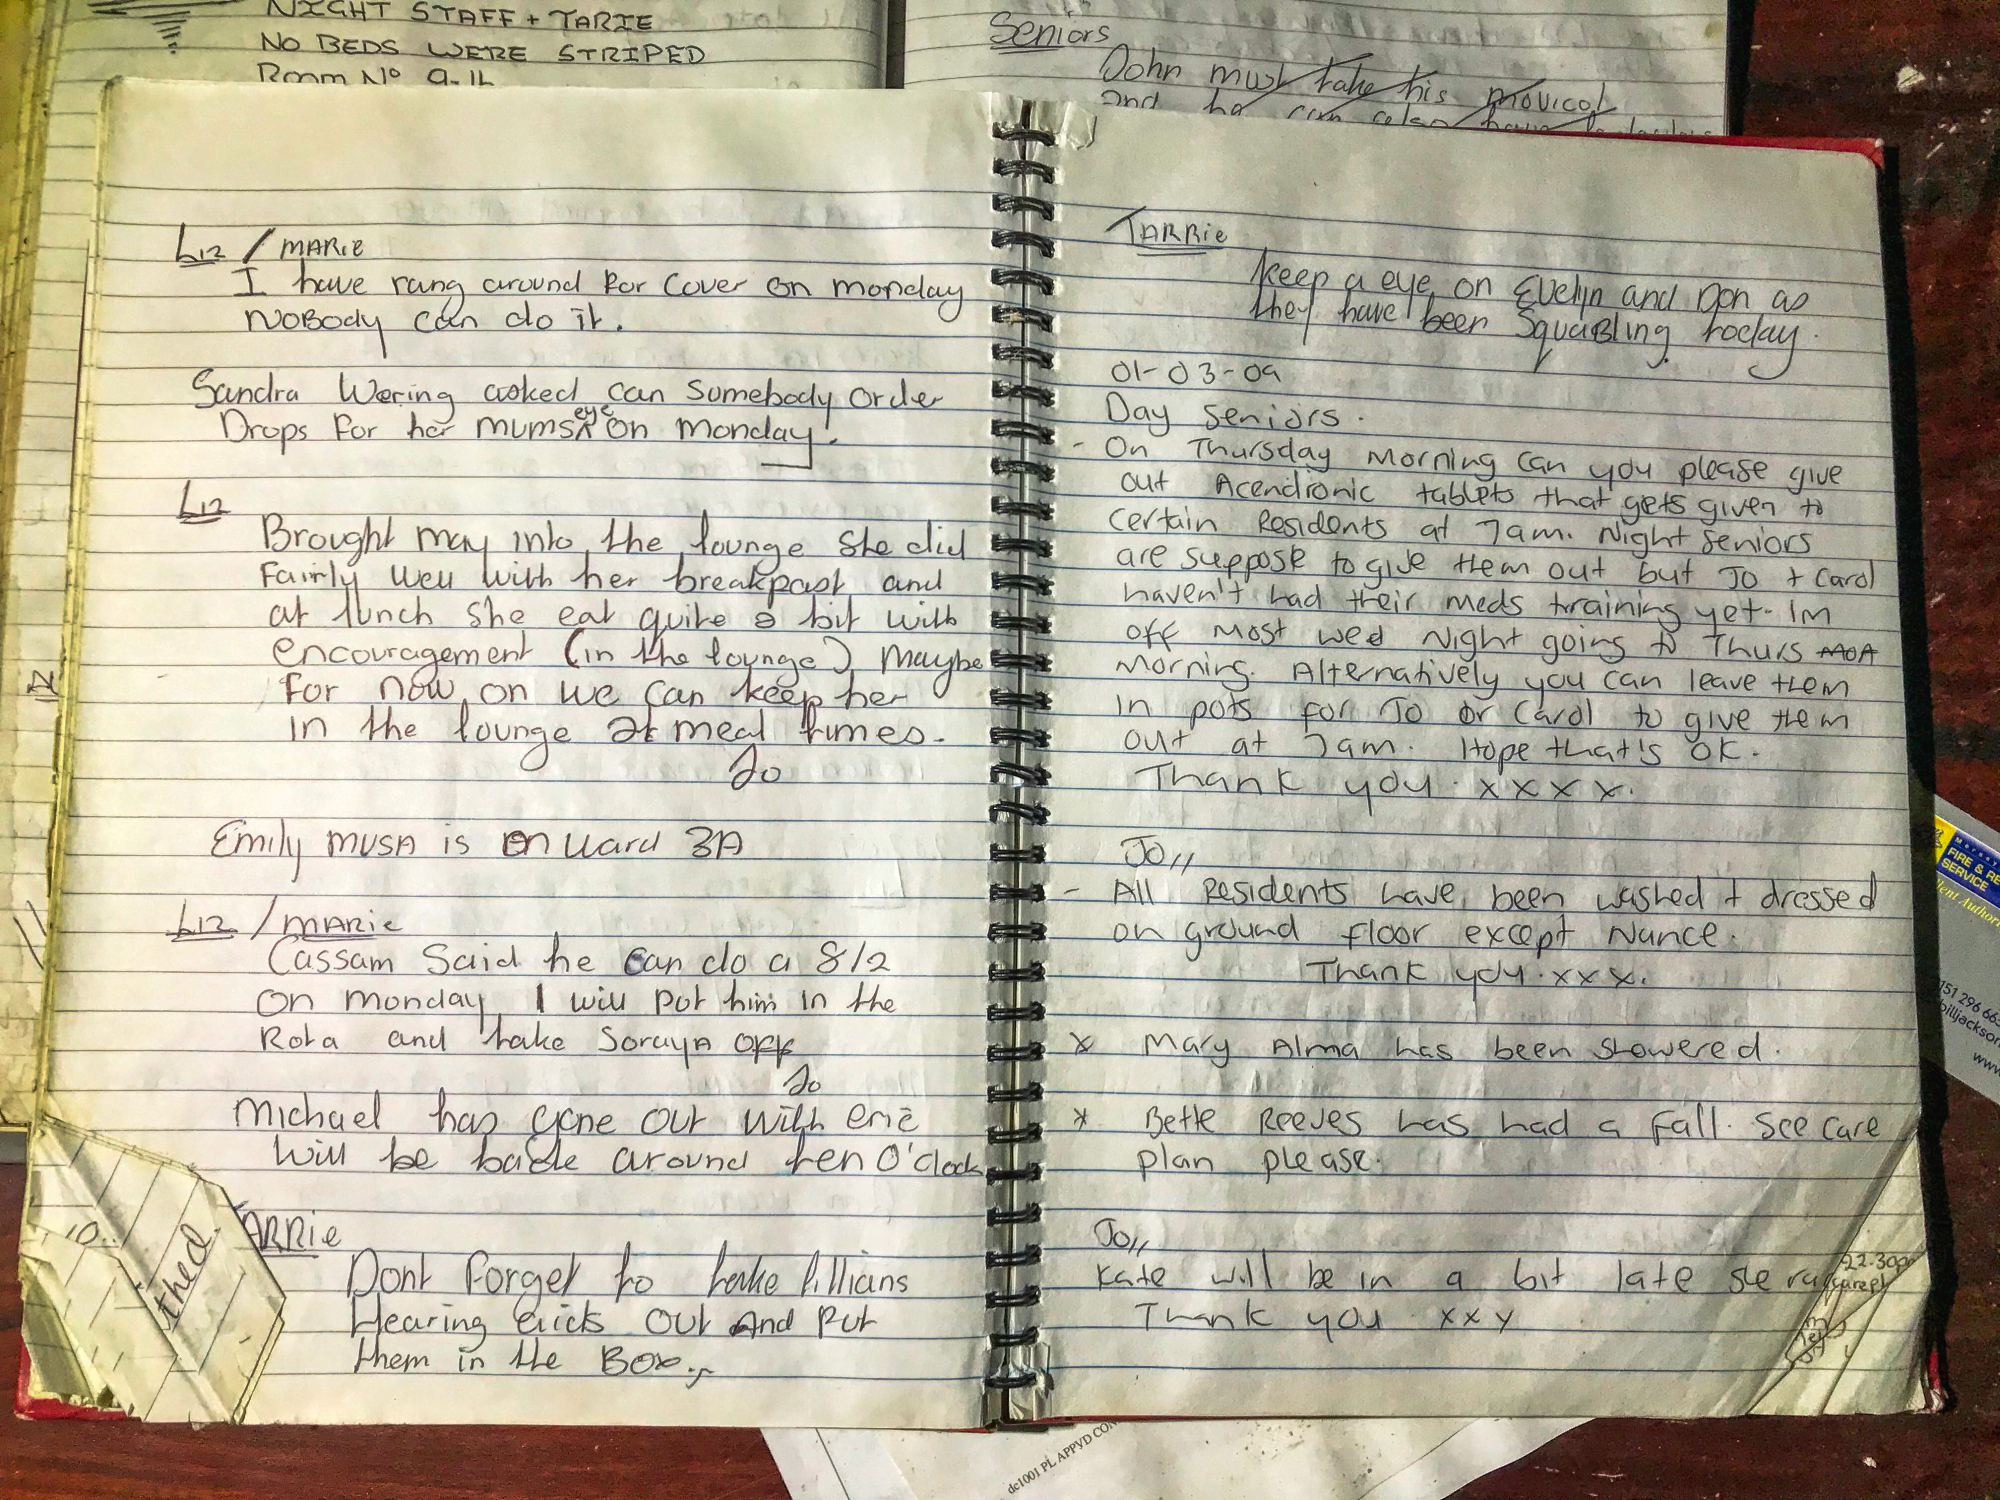 NIGHT STAFF + TARIE
NO BEDS WERE STRIPED
Room No 9-16
Seniors
John must take his movicol
and he can
Liz / MARIE
I have rang around for cover on monday
NOBODY can do it.
Sandra Wering asked can somebody order
Drops for her mums eye on monday.
Liz
Brought may into the lounge she did
fairly well with her breakfast and
at lunch she eat quite a bit with
encouragement (in the lounge) maybe
for now on we can keep her
in the lounge at meal times.
Jo
Emily MUSA is on ward 3A
Liz / MARIE
Cassam Said he can do a 8/2
on monday I will put him in the
Rota and take SorayA off
Jo
Michael has gone out with eric
will be back around ten O'clock
ARRie
Dont forget to take lillians
Hearing Out And Put
them in the Box.
10
thed
TARRie
keep a eye on Evelyn and Don as
they have been SquaBling today.
01-03-09
Day Seniors.
- On Thursday Morning can you please give
out Acendronic tablets that gets given to
certain Residents at 7am. Night Seniors
are suppose to give them out but Jo + Carol
haven't had their meds training yet. Im
off most wed Night going to Thurs
morning. Alternatively you can leave them
in pots for Jo or Carol to give them
out at 7am. Hope that's OK.
Thank you. x x x x.
JO,,
- All Residents have been washed + dressed
on ground floor except Nance.
Thank you. x x x.
x Mary Alma has been showered.
* Bette Reeves has had a fall. See care
plan please.
Jo,,
Kate will be in a bit late she
22.30pm
Thank you x x y
FIRE & RE
SERVICE
151 296 665
billjackson
www
dc1001 PL APPVD CON